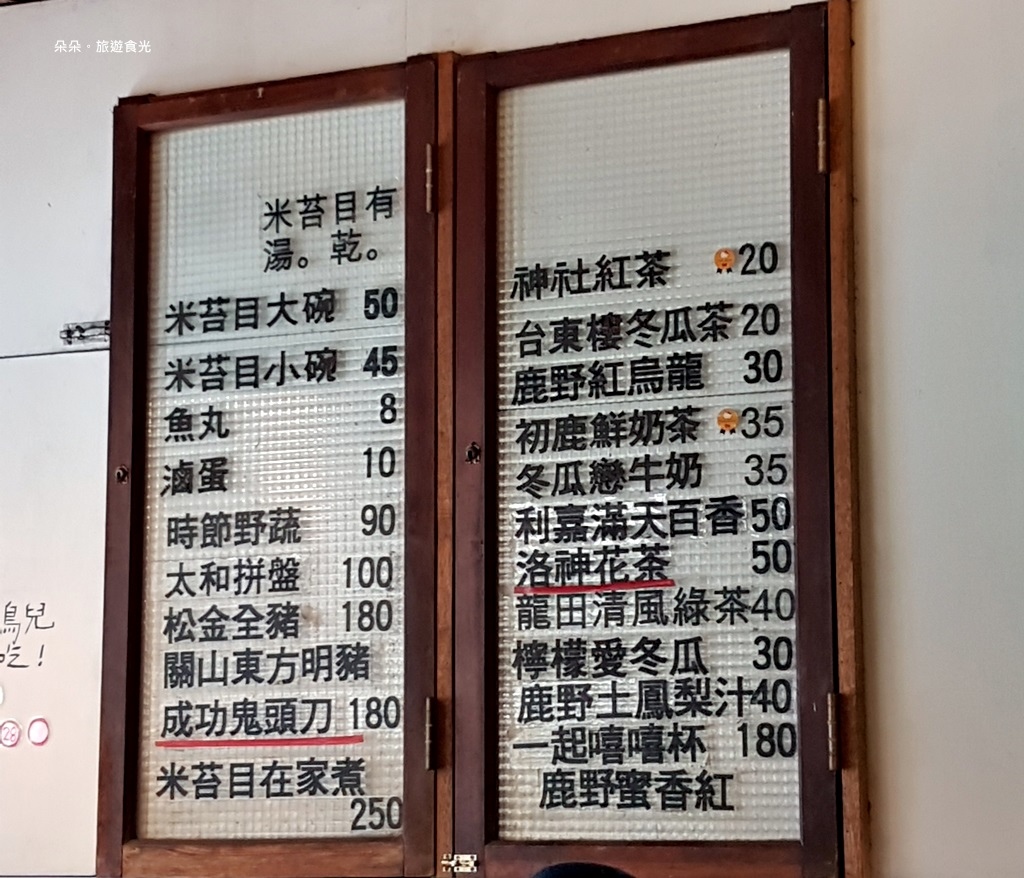 朵朵·旅遊食光
米苔目有
湯。乾。
米苔目大碗 50
米苔目小碗 45
魚丸 8
滷蛋 10
時節野蔬 90
太和拼盤 100
松金全豬 180
關山東方明豬
成功鬼頭刀 180
米苔目在家煮
250
神社紅茶 20
台東樓冬瓜茶 20
鹿野紅烏龍 30
初鹿鮮奶茶 35
冬瓜戀牛奶 35
利嘉滿天百香 50
洛神花茶 50
龍田清風綠茶 40
檸檬愛冬瓜 30
鹿野土鳳梨汁 40
一起嘻嘻杯 180
鹿野蜜香紅
鳥兒
吃！